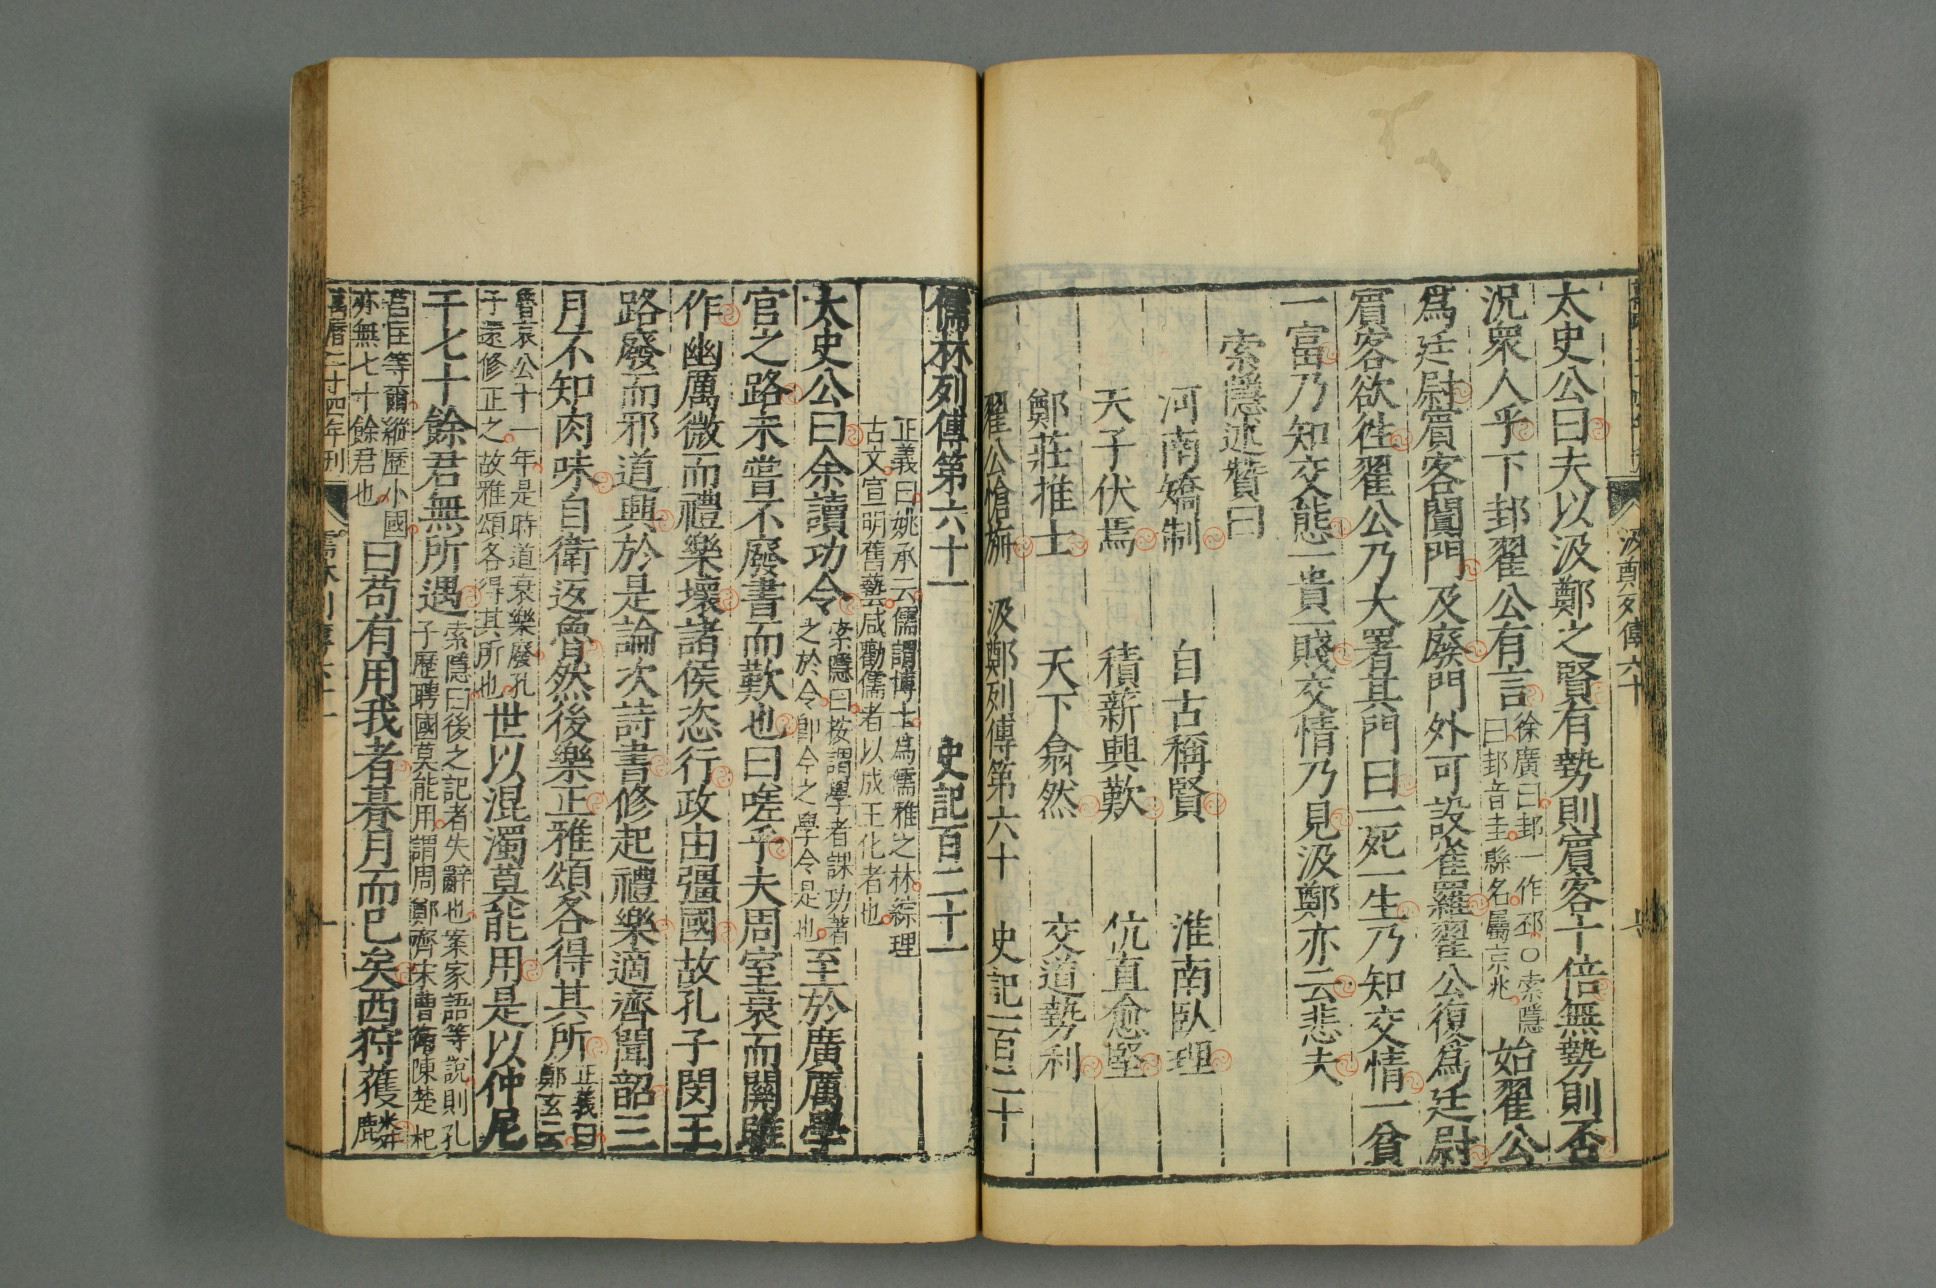 汲鄭列傳六十
太史公曰夫以汲鄭之賢有勢則賓客十倍無勢則否
況衆人乎下邽翟公有言徐廣曰邽一作邳○索隱
曰邽音圭縣名屬京兆始翟公
爲廷尉賓客闐門及廢門外可設雀羅翟公復爲廷尉
賓客欲往翟公乃大署其門曰一死一生乃知交情一貧
一富乃知交態一貴一賤交情乃見汲鄭亦云悲夫
索隱述贊曰
河南矯制 自古稱賢 淮南臥理
天子伏焉 積薪興歎 伉直愈堅
鄭莊推士 天下翕然 交道勢利
翟公愴旃 汲鄭列傳第六十 史記一百二十
儒林列傳第六十一 史記百二十一
正義曰姚承云儒謂博士爲儒雅之林綜理
古文宣明舊藝咸勸儒者以成王化者也
太史公曰余讀功令索隱曰按謂學者課功著
之於令卽今之學令是也至於廣厲學
官之路未嘗不廢書而歎也曰嗟乎夫周室衰而關雎
作幽厲微而禮樂壞諸侯恣行政由彊國故孔子閔王
路廢而邪道興於是論次詩書修起禮樂適齊聞韶三
月不知肉味自衛返魯然後樂正雅頌各得其所正義曰
鄭玄云
魯哀公十一年是時道衰樂廢孔
子還修正之故雅頌各得其所也世以混濁莫能用是以仲尼
干七十餘君無所遇索隱曰後之記者失辭也案家語等說則孔
子歷聘國莫能用謂周鄭齊宋曹衛陳楚杞
莒匡等爾縱歷小國
亦無七十餘君也曰苟有用我者朞月而已矣西狩獲麟
萬曆二十四年刊 儒林列傳六十一 一